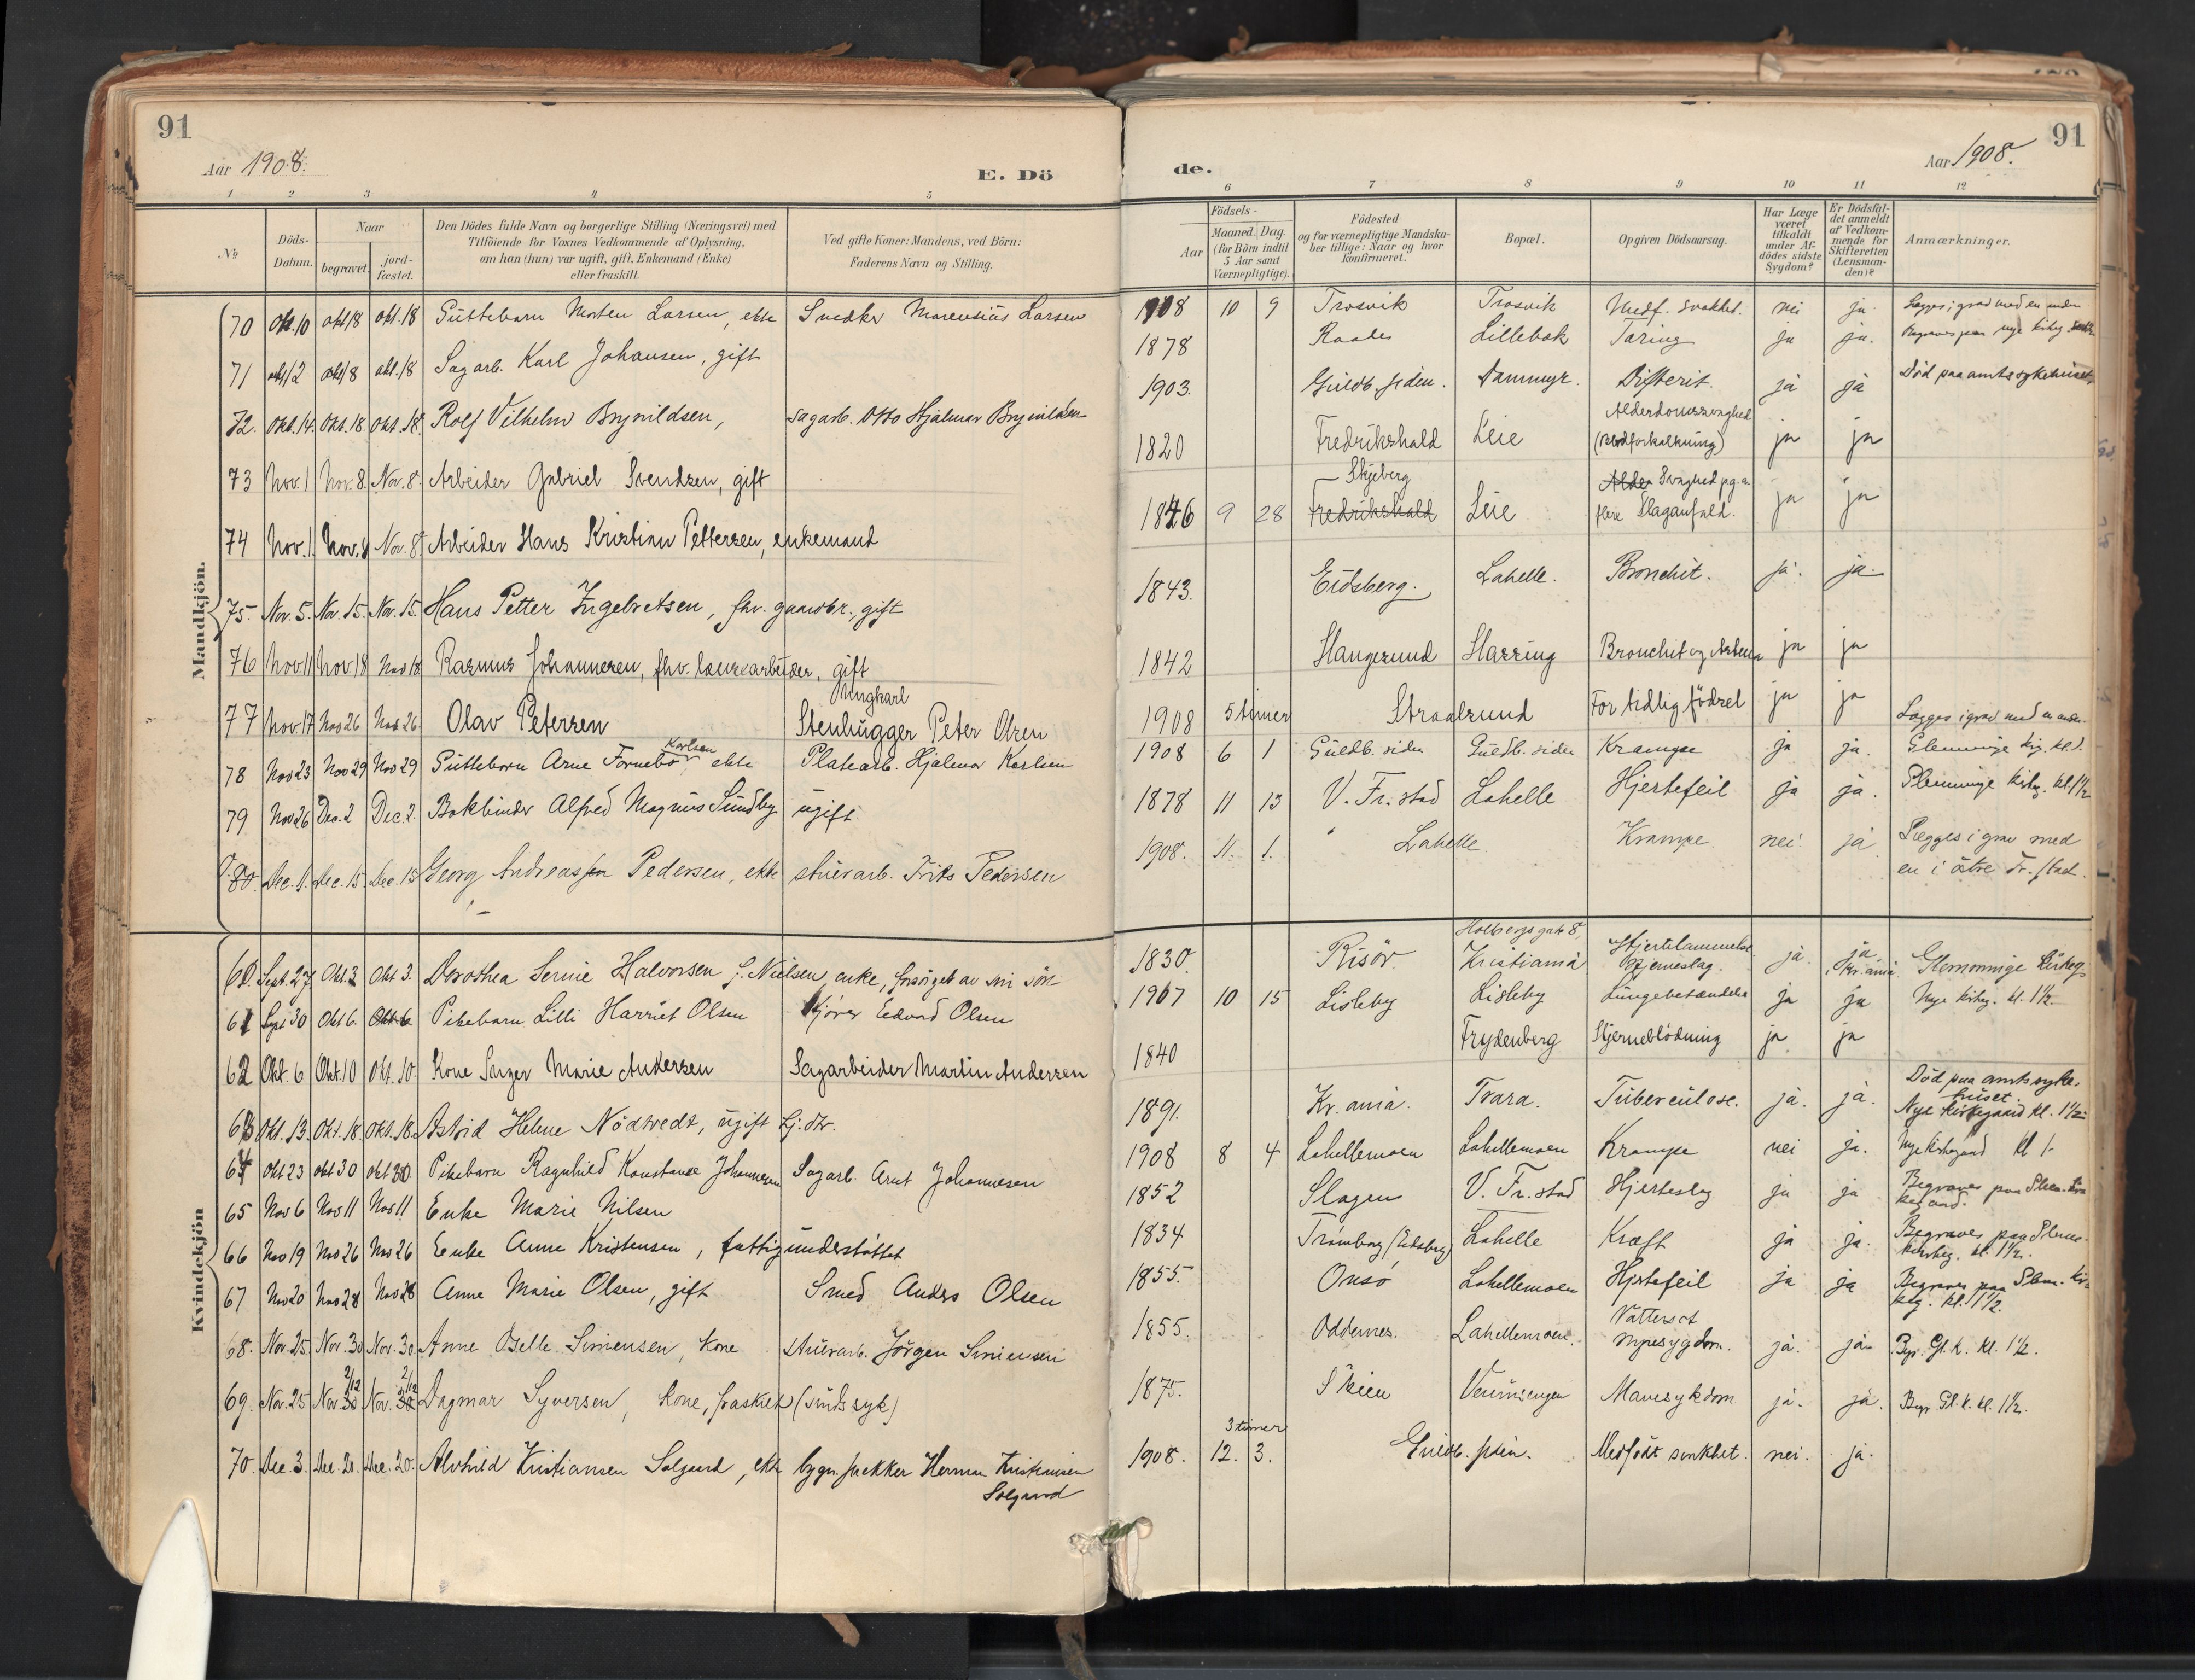 91
Aar 1908.
E. Dö
1 2 3 4 5
No
Döds-Datum.
Naar
begravet.
jord-fæstet.
Den Dödes fulde Navn og borgerlige Stilling (Næringsvei) med
Tilföiende for Voxnes Vedkommende af Oplysning,
om han (hun) var ugift, gift, Enkemand (Enke)
eller fraskilt.
Ved gifte Koner: Mandens, ved Börn:
Faderens Navn og Stilling.
Mandkjön.
70 Okt. 10 okt 18 okt. 18 Guttebarn Morten Larsen, ekte Snedker Marensius Larsen
71 okt 12 okt 18 okt. 18 Sagarb. Karl Johansen, gift
72. Okt. 14. Okt. 18. Okt. 18. Rolf Vilhelm Brynildsen, sagarb. Otto Hjalmar Brynildsen
73 Nov. 1 Nov. 8. Nov. 8. Arbeider Gabriel Svendsen, gift
74 Nov. 1. Nov. 8 Nov. 8. Arbeider Hans Kristian Pettersen, enkemand
75. Nov. 5. Nov. 15. Nov. 15. Hans Petter Ingebretsen, fhv. gaardbr., gift
76 Nov. 11 Nov. 18 Nov 18 Rasmus Johannesen, fhv. lænsearbeider, gift
77 Nov. 17 Nov 26 Nov 26. Olav Petersen Ungkarl
Stenhugger Peter Olsen
78 Nov 23 Nov 29 Nov 29 Gutteborn Arne Fornebo Karlsen ekte Platearb. Hjalmar Karlsen
79 Nov 26 Dec. 2 Dec. 2. Bokbinder Alfred Magnus Sundby ugift
80. Dec. 1. Dec. 15. Dec. 15 Georg Andreas Pedersen, ekte stuerarb. Frits Pedersen
Kvindekjön
60. Sept. 27 Okt. 3 Okt 3. Dorothea Serine Halvorsen f. Nielsen, enke, forsörget av sin sön
61 Sept 30 Okt 6. Okt 6 Pikebarn Lilli Harriet Olsen Kjörer Edvard Olsen
62 Okt. 6 Okt. 10 Okt. 10. Kone Inger Marie Andersen Sagarbeider Martin Andersen
63 Okt. 13. Okt. 18. Okt. 18. Astrid Helene Nödtvedt, ugift tj.dtr.
64 Okt 23 okt 30 okt 30 Pikebarn Ragnhild Konstanse Johannesen Sagarb. Arnt Johannesen
65 Nov 6 Nov 11 Nov 11 Enke Marie Nilsen
66 Nov 19 Nov 26 Nov 26 Enke Anne Kristensen, fattigunderstöttet
67 Nov 20 Nov 28 Nov 28 Anne Marie Olsen, gift Smed Anders Olsen
68. Nov. 25 Nov. 30 Nov. 30 Anne Oselle Simensen, kone stuerarb. Jörgen Simensen
2/12 2/12
69. Nov. 25 Nov. 30 Nov. 30 Dagmar Syversen, kone, fraskilt (sindssyk)
70. Dec. 3. Dec. 20. Dec. 20. Alvhild Kristiansen Solgaard, ekte bygn. snekker Herman Kristiansen
Solgaard
91
Aar 1908.
de.
6 7 8 9 10 11 12
Födsels-
Aar
Maaned. Dag.
(for Börn indtil
5 Aar samt
Værnepligtige).
Födested
og for værnepligtige Mandska-
ber tillige: Naar og hvor
konfirmeret.
Bopæl.
Opgiven Dödsaarsag.
Har Læge
været
tilkaldt
under Af-
dödes sidste
Sygdom?
Er Dödsfal-
det anmeldt
af Vedkom-
mende for
Skifteretten
(Lensman-
den)?
Anmærkninger.
1908 10 9 Trosvik Trosvik Medf. svakhet. nei ja. Lægges i grav med en anden
1878 Raade Lillebæk Tæring ja ja. Begraves paa nye kirkeg.
1903. Guldb. siden. Dammyr. Difterit. ja ja Död paa amtssykehuset
1820 Fredrikshald Leie Alderdomssvaghed
(aareforkalkning) ja ja
1846 9 28 Skjeberg
Fredrikshald Leie Alder Svaghed pg.a.
flere Slaganfald. ja ja
1843. Eidsberg. Lahelle. Bronchit. ja. ja.
1842 Haugesund Harring Bronchit og Astma ja ja
1908 5 timer Straalsund For tidlig födsel ja ja Lægges i grav med en anden.
1908 6 1 Guldb. siden Guldb. siden Krampe ja ja. Glemminge kig. kl. 1.
1878 11 13 V. Fr. stad Lahelle Hjertefeil ja ja. Glemminge kirkeg. kl. 1 1/2
1908. 11. 1. Lahelle Krampe nei ja Lægges i grav med
en i östre Fr. stad.
1830. Risör. Holbergs gate 8,
Kristiania Hjertelammelse
Hjerneslag. ja. ja,
Kr.ania. Glemminge Kirkeg.
1907 10 15 Lisleby Lisleby Lungebetændelse ja ja Nye kirkeg. kl. 1 1/2
1840 Frydenberg Hjerneblödning ja ja
1891. Kr. ania. Trara. Tuberculose. ja. ja. Död paa amtssyke-
huset.
Nye kirkegaard kl. 1 1/2
1908 8 4 Lahellemoen Lahellemoen Krampe nei ja. Nye kirkegaard kl 1.
1852 Slagen V. Fr. stad Hjerteslag ja ja Begraves paa Glem. kir
kegaard.
1834 Trömborg (Eidsberg) Lahelle Kræft ja ja. Begraves paa Glem.
kirkeg. kl. 1 1/2.
1855. Onsö Lahellemoen Hjertefeil ja ja Begraves paa Glem. kir-
keg. kl. 1 1/2.
1855. Oddernes. Lahellemoen. Vattersot
nyresygdom. ja. ja. Begr. Gl. k. kl. 1 1/2.
1875. Skien Verumsengen Mavesykdom ja. ja. Begr. Gl. k. kl. 1 1/2.
3 timer
1908. 12. 3. Guldb. siden. Medfödt svakhet. nei. ja.